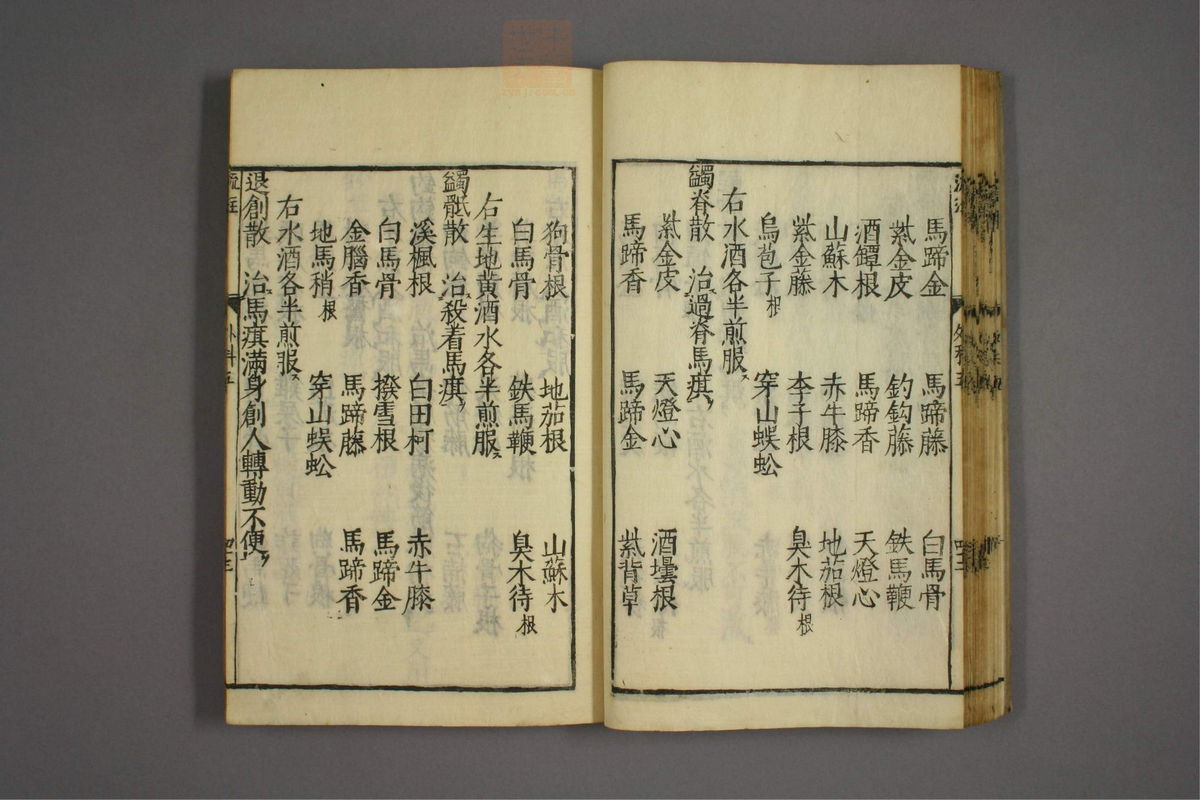 馬蹄金 馬蹄藤 白馬骨
紫金皮 釣鈎藤 鉄馬鞭
酒罈根 馬蹄香 天燈心
山蘇木 赤牛膝 地茄根
紫金藤 李子根 臭木待根
烏苞子根 穿山蜈蚣
右水酒各半煎服
蠲脊散 治過脊馬㾵
紫金皮 天燈心 酒壜根
馬蹄香 馬蹄金 紫背草
狗骨根 地茄根 山蘇木
白馬骨 鉄馬鞭 臭木待根
右生地黄酒水各半煎服
蠲骶散 治殺着馬㾵
溪楓根 白田柯 赤牛膝
白馬骨 撥雪根 馬蹄金
金腦香 馬蹄藤 馬蹄香
地馬稍根 穿山蜈蚣
右水酒各半煎服
退創散 治馬㾵滿身創人轉動不便
外科五